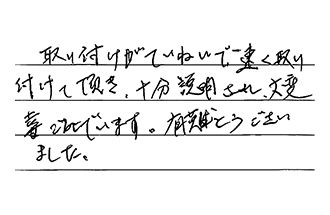 取り付けがていねいで速く取り
付けて頂き、十分説明され、大変
喜んでいます。有難とうござい
ました。